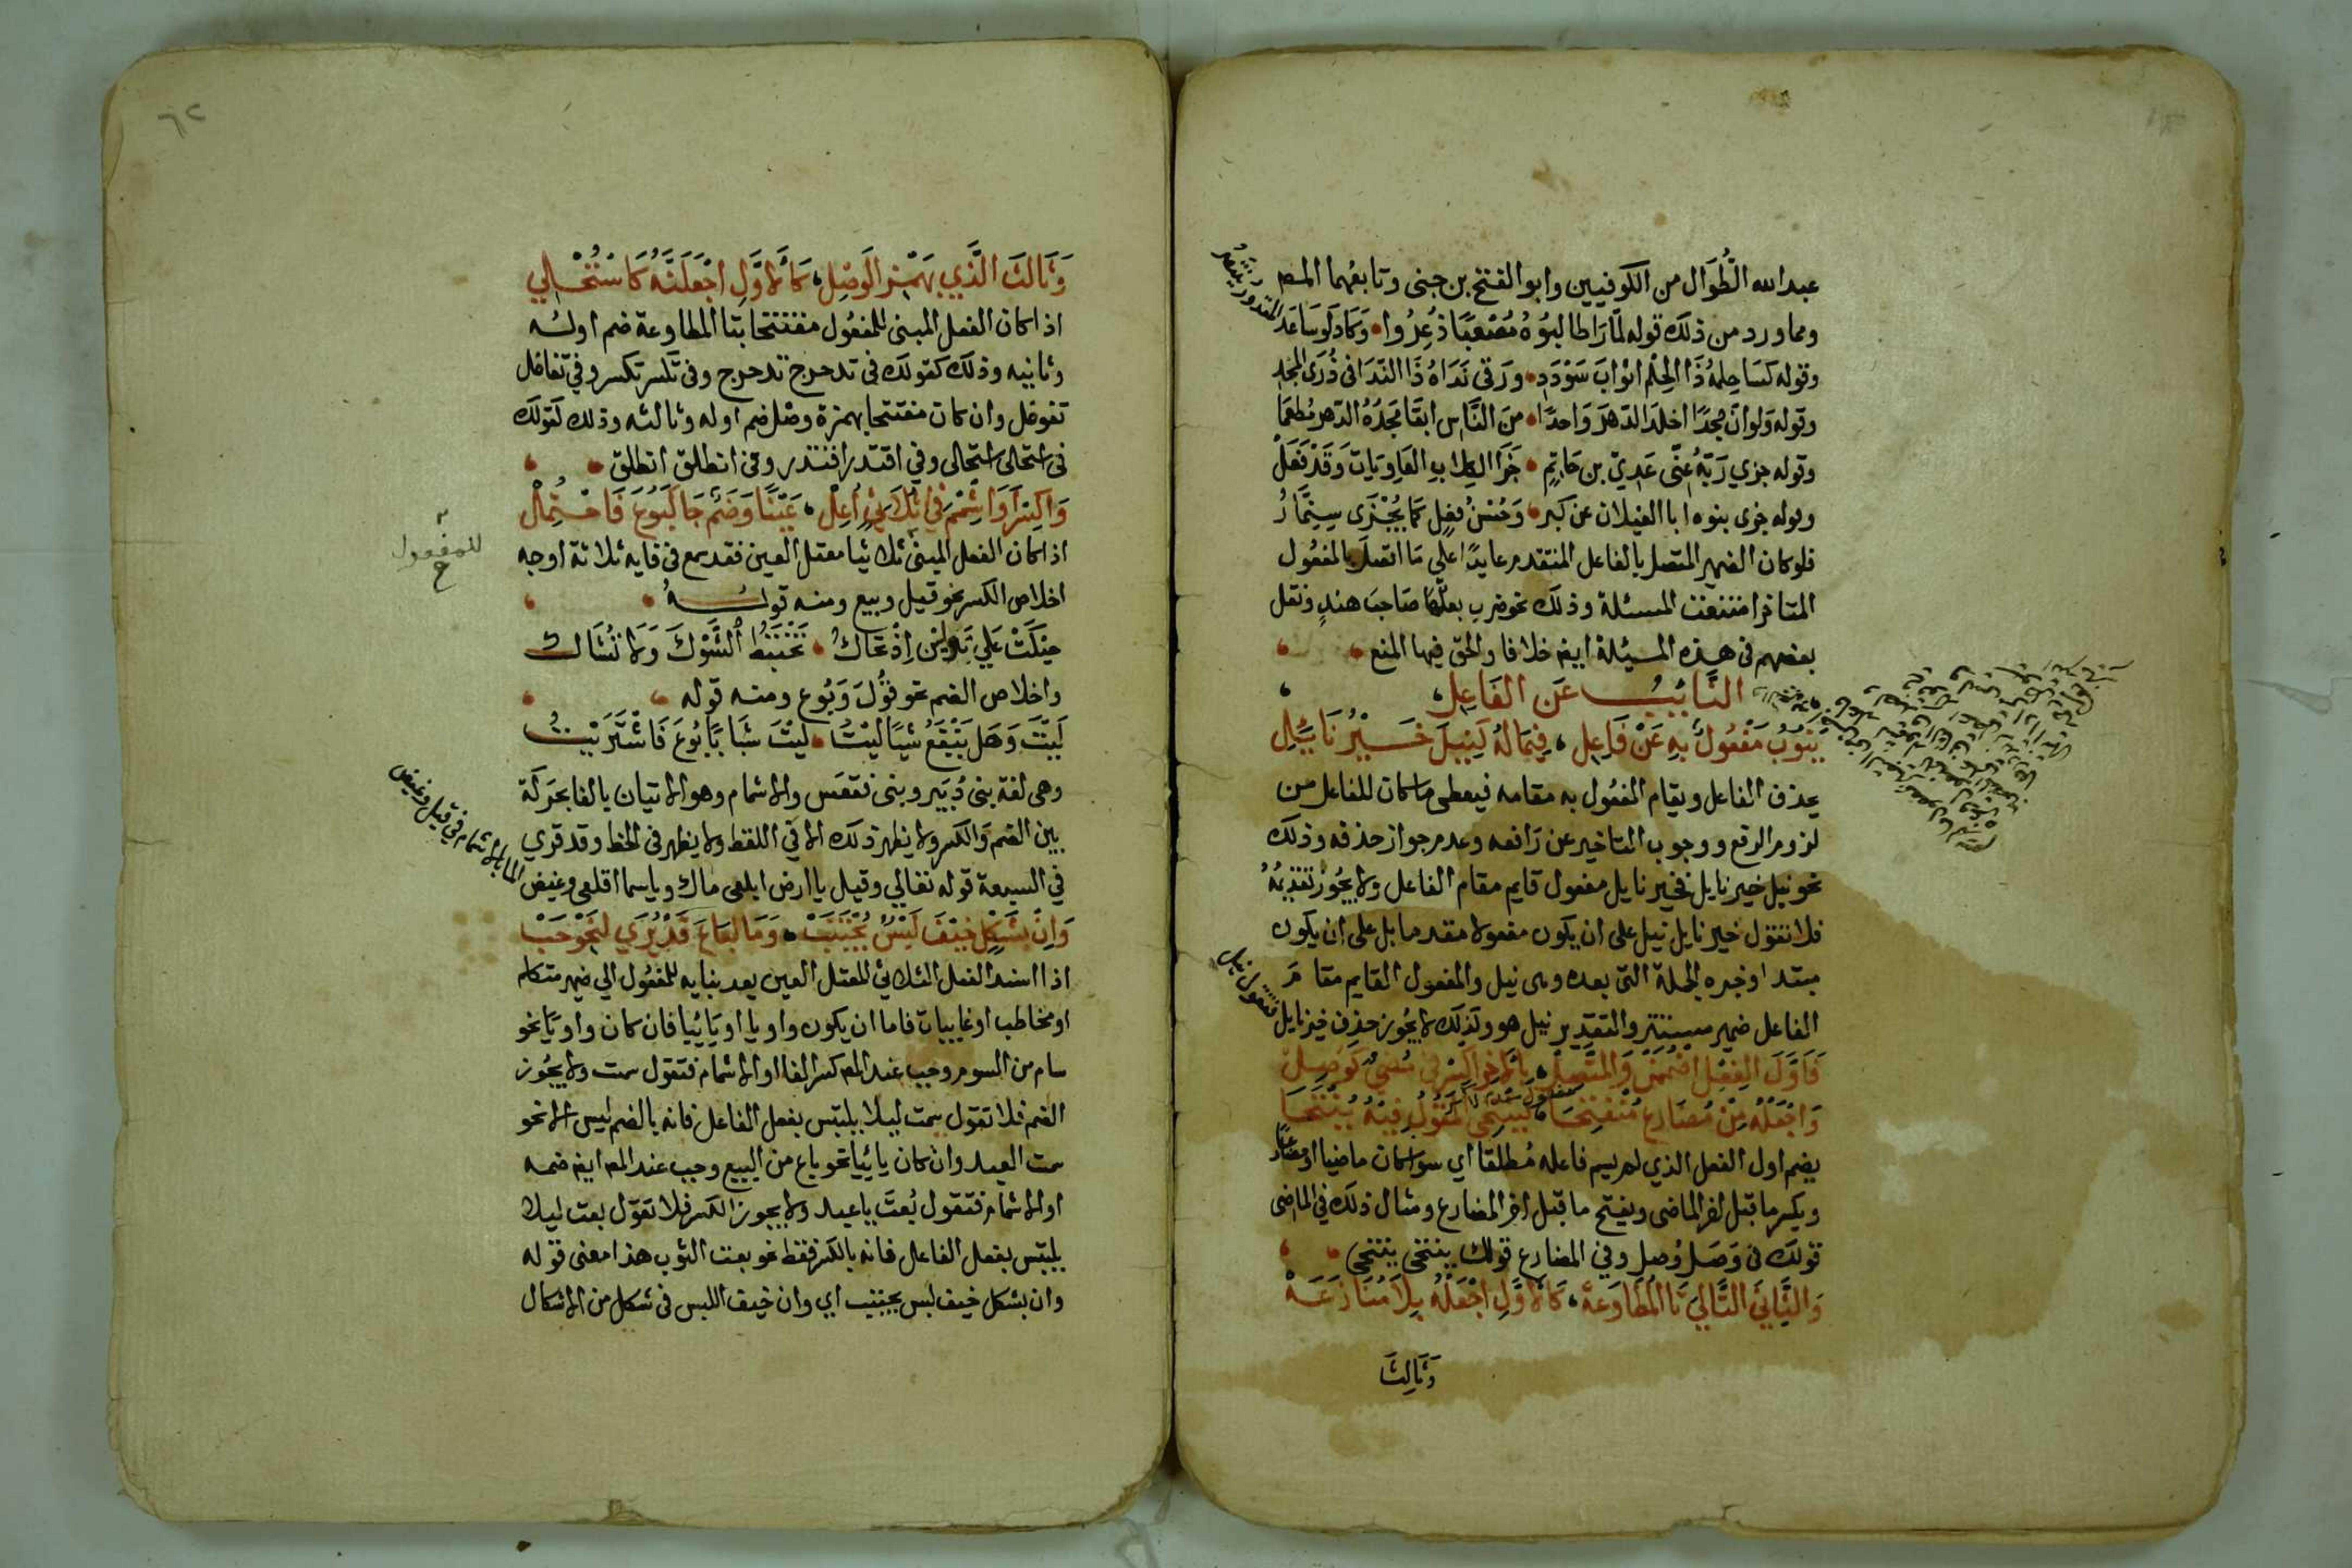 عبد الله الطُّوَال من الكوفيين وابو الفتح بن جنى وتابعهما المص
ومما ورد من ذلك قوله لمّا رَا طالبُوهُ مُصْعَبًا ذُعِرُوا وَكَادَ لَوسَاعَدَ
المقدور ينتصر
وقوله كسَا حِلمُهُ ذَا الحِلْمِ اثوَابَ سَودَدٍ ورَقى نَدَاهُ ذَا النَّدَا فى ذُرَى المجدِ
وقوله وَلَوانَّ مَجدًا اخلدَ الدّهرَ وَاحدًا منَ النَّاسِ ابقَا مَجدُهُ الدّهرَ مُطعِمَا
وقوله جزي رَبّهُ عنّى عَدِيّ بن حَاتِمٍ جَزَا الكِلابِ العَاوِيَات وَقَدْ فَعَلْ
وقوله جزى بنوه ابا الغيلان عن كبرٍ وَحُسْنُ فعلٍ كمَا يُجْزَى سِنِمَّارُ
فلوكان الضمير المتصل بالفاعل المتقدم عايدًا على مَا اتصَلَ بالمفعُول
المتاخر امتنعت المسئلة وذلك نحو ضرب بعلُهَا صَاحبَ هندٍ ونقل
بعضهم فى هذه المسئلة ايض خلافا والحق فيها المنع
النَّايبُ عَن الفَاعِل
يَنُوبُ مَفْعُولٌ بِهِ عَنْ فَاعِلِ فِيمَا لَهُ كَنِيلَ خَيْرُ نَايِلِ
يحذف الفاعل ويقام المفعُول به مقامه فيعطى ما كان للفاعل من
لزوم الرفع ووجوب التاخير عن رَافعه وعدم جواز حذفه وذلك
نحو نيل خير نايل فخير نايل مفعول قايم مقام الفاعل ولا يجُوز تقديمُهُ
فلا نقول خير نايل نيل على ان يكون مفعولا مقدما بل على ان يكون
مبتدا وخبره الجملة التى بعده وهى نيل والمفعول القايم مقامَ
الفاعل ضمير مستتر والتقدير نيل هو وكذلك لا يجُوز حذف خير نايل
فتقول نيل
فَاوَّلَ الفِعْلِ اضْمُمَنْ وَالمتَّصِلْ بِالاخِرِ اكسِرْ فى مُضىٍّ كَوُصِلْ
وَاجْعَلْهُ مِنْ مُضَارِعٍ مُنْفَتِحَا كَيَنْتَحِى المَقُولِ فِيهِ يُنْتَحَا
يضم اول الفعل الذي لم يسم فاعله مُطلقا اي سواكان ماضيا او مضارعا
ويكسر ما قبل اخر الماضى ويفتح ما قبل اخر المضارع ومثال ذلك فى الماضى
قولك فى وَصَلَ وُصِلَ وفى المضارع قولك ينتحى ينتحى
وَالثَّانِيَ التَّالِيَ تَا المُطَاوَعهْ كَالاوَّلِ اجْعَلْهُ بِلَا مُنَازَعَهْ
وَثَالِثَ
٦٢
وَثَالثَ الَّذي بهَمْزِ الوَصْلِ كَالاوَّلِ اجْعَلَنَّهُ كَاسْتُحْلِي
اذا كان الفعل المبنى للمفعُول مفتتحا بتا المطاوعة ضم اوله
وثانيه وذلك كقولك فى تدحرج تدحرج وفى تكسر تكسر وفي تغافل
تغوفل وان كان مفتتحا بهمزة وصل ضم اوله وثالثه وذلك كقولك
فى استحلى استحلى وفي اقتدر اقتدر وفى انطلق انطلق
وَاكسِرْ اَوَ اشْمِمْ فَا ثُلَاثِيٍّ اُعِلّ عَيْنًا وَضَمٌّ جَا كَبُوعَ فَاحْتُمِلْ
اذا كان الفعل المبنى ثلاثيا معتل العين فقد سمع فى فايه ثلاثة اوجه
للمفعول
اخلاص الكسر نحو قيل وبيع ومنه قوله
حيكَتْ عَلي نِيرَين اِذْ تحَاكُ تَخْتَبِطُ الشَّوْكَ وَلا تُشَاك
واخلاص الضم نحو قُولَ وَبُوع ومنه قوله
لَيْتَ وَهَل يَنْفَعُ شَيئًا لَيْتُ لَيْتَ شَبَابًا بُوعَ فَاشْتَرَيْتُ
وهى لغة بنى دُبَير وبنى فقعَس والاشمام وهو الاتيان بالفا بحَركة
بين الضم وَالكسر ولا يظهر ذلك الا في اللفظ ولا يظهر فى الخط وقد قري
في السبعة قوله تعالي وقيل ياارض ابلعى ماك وياسما اقلعى وغيض
الما بالاشمام في قيل وغيض
وَاِنْ بِشَكْلٍ خِيفَ لَبْسٌ يُجْتَنَبْ وَمَا لبَاعَ قَدْ يُرَي لنَحْوِ حَبّ
اذا اسند الفعل الثلاثي المعتل العين بعد بنايه للمفعُول الي ضمير متكلم
او مخاطب او غايبات فاما ان يكون واويا او يَائيا فان كان واويًا نحو
سام من السوم وجب عند المص كسر الفا او الاشمام فتقول سمت ولا يجُوز
الضم فلا تقول سمت ليلا يلتبس بفعل الفاعل فانه بالضم ليس الا نحو
سمت العبد وان كان يائيا نحو باع من البيع وجب عند المص ايض ضمه
او الاشمام فتقول بُعتَ ياعبد ولا يجوز الكسر فلا تقول بعت ليلا
يلتبس بفعل الفاعل فانه بالكسر فقط نحو بعت الثوب هذا معنى قوله
وان بشكل خيف لبس يجتنب اي وان خيف اللبس فى شكل من الاشكال